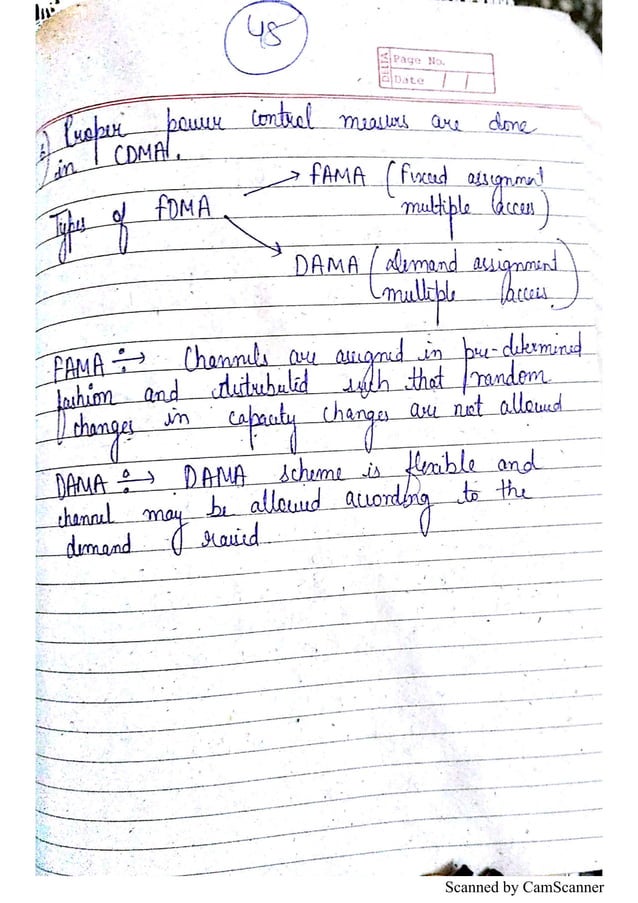 45
DELTA Page No.
Date / /
6) Proper power control measurs are done
in CDMA.
Types of FDMA
→ FAMA (fixed assignment
multiple access)
→ DAMA (demand assignment
multiple access)
FAMA ÷→ Channels are assigned in pre-determined
fashion and distributed such that random
changes in capacity changes are not allowed
DAMA ÷→ DAMA scheme is flexible and
channel may be allowed according to the
demand raised
Scanned by CamScanner